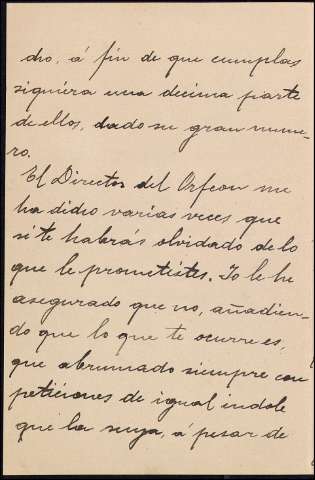 dro, á fin de que cumplas
siquiera una decima parte
de ellos, dado su gran nume-
ro.
El Director del Orfeon me
ha didro varias veces que
si te habrás olvidado de lo
que le prometistes. Yo le he
asegurado que no, añadien-
do que lo que te ocurre es,
que abrumado siempre con
peticiones de igual indole
que la suya, á pesar de